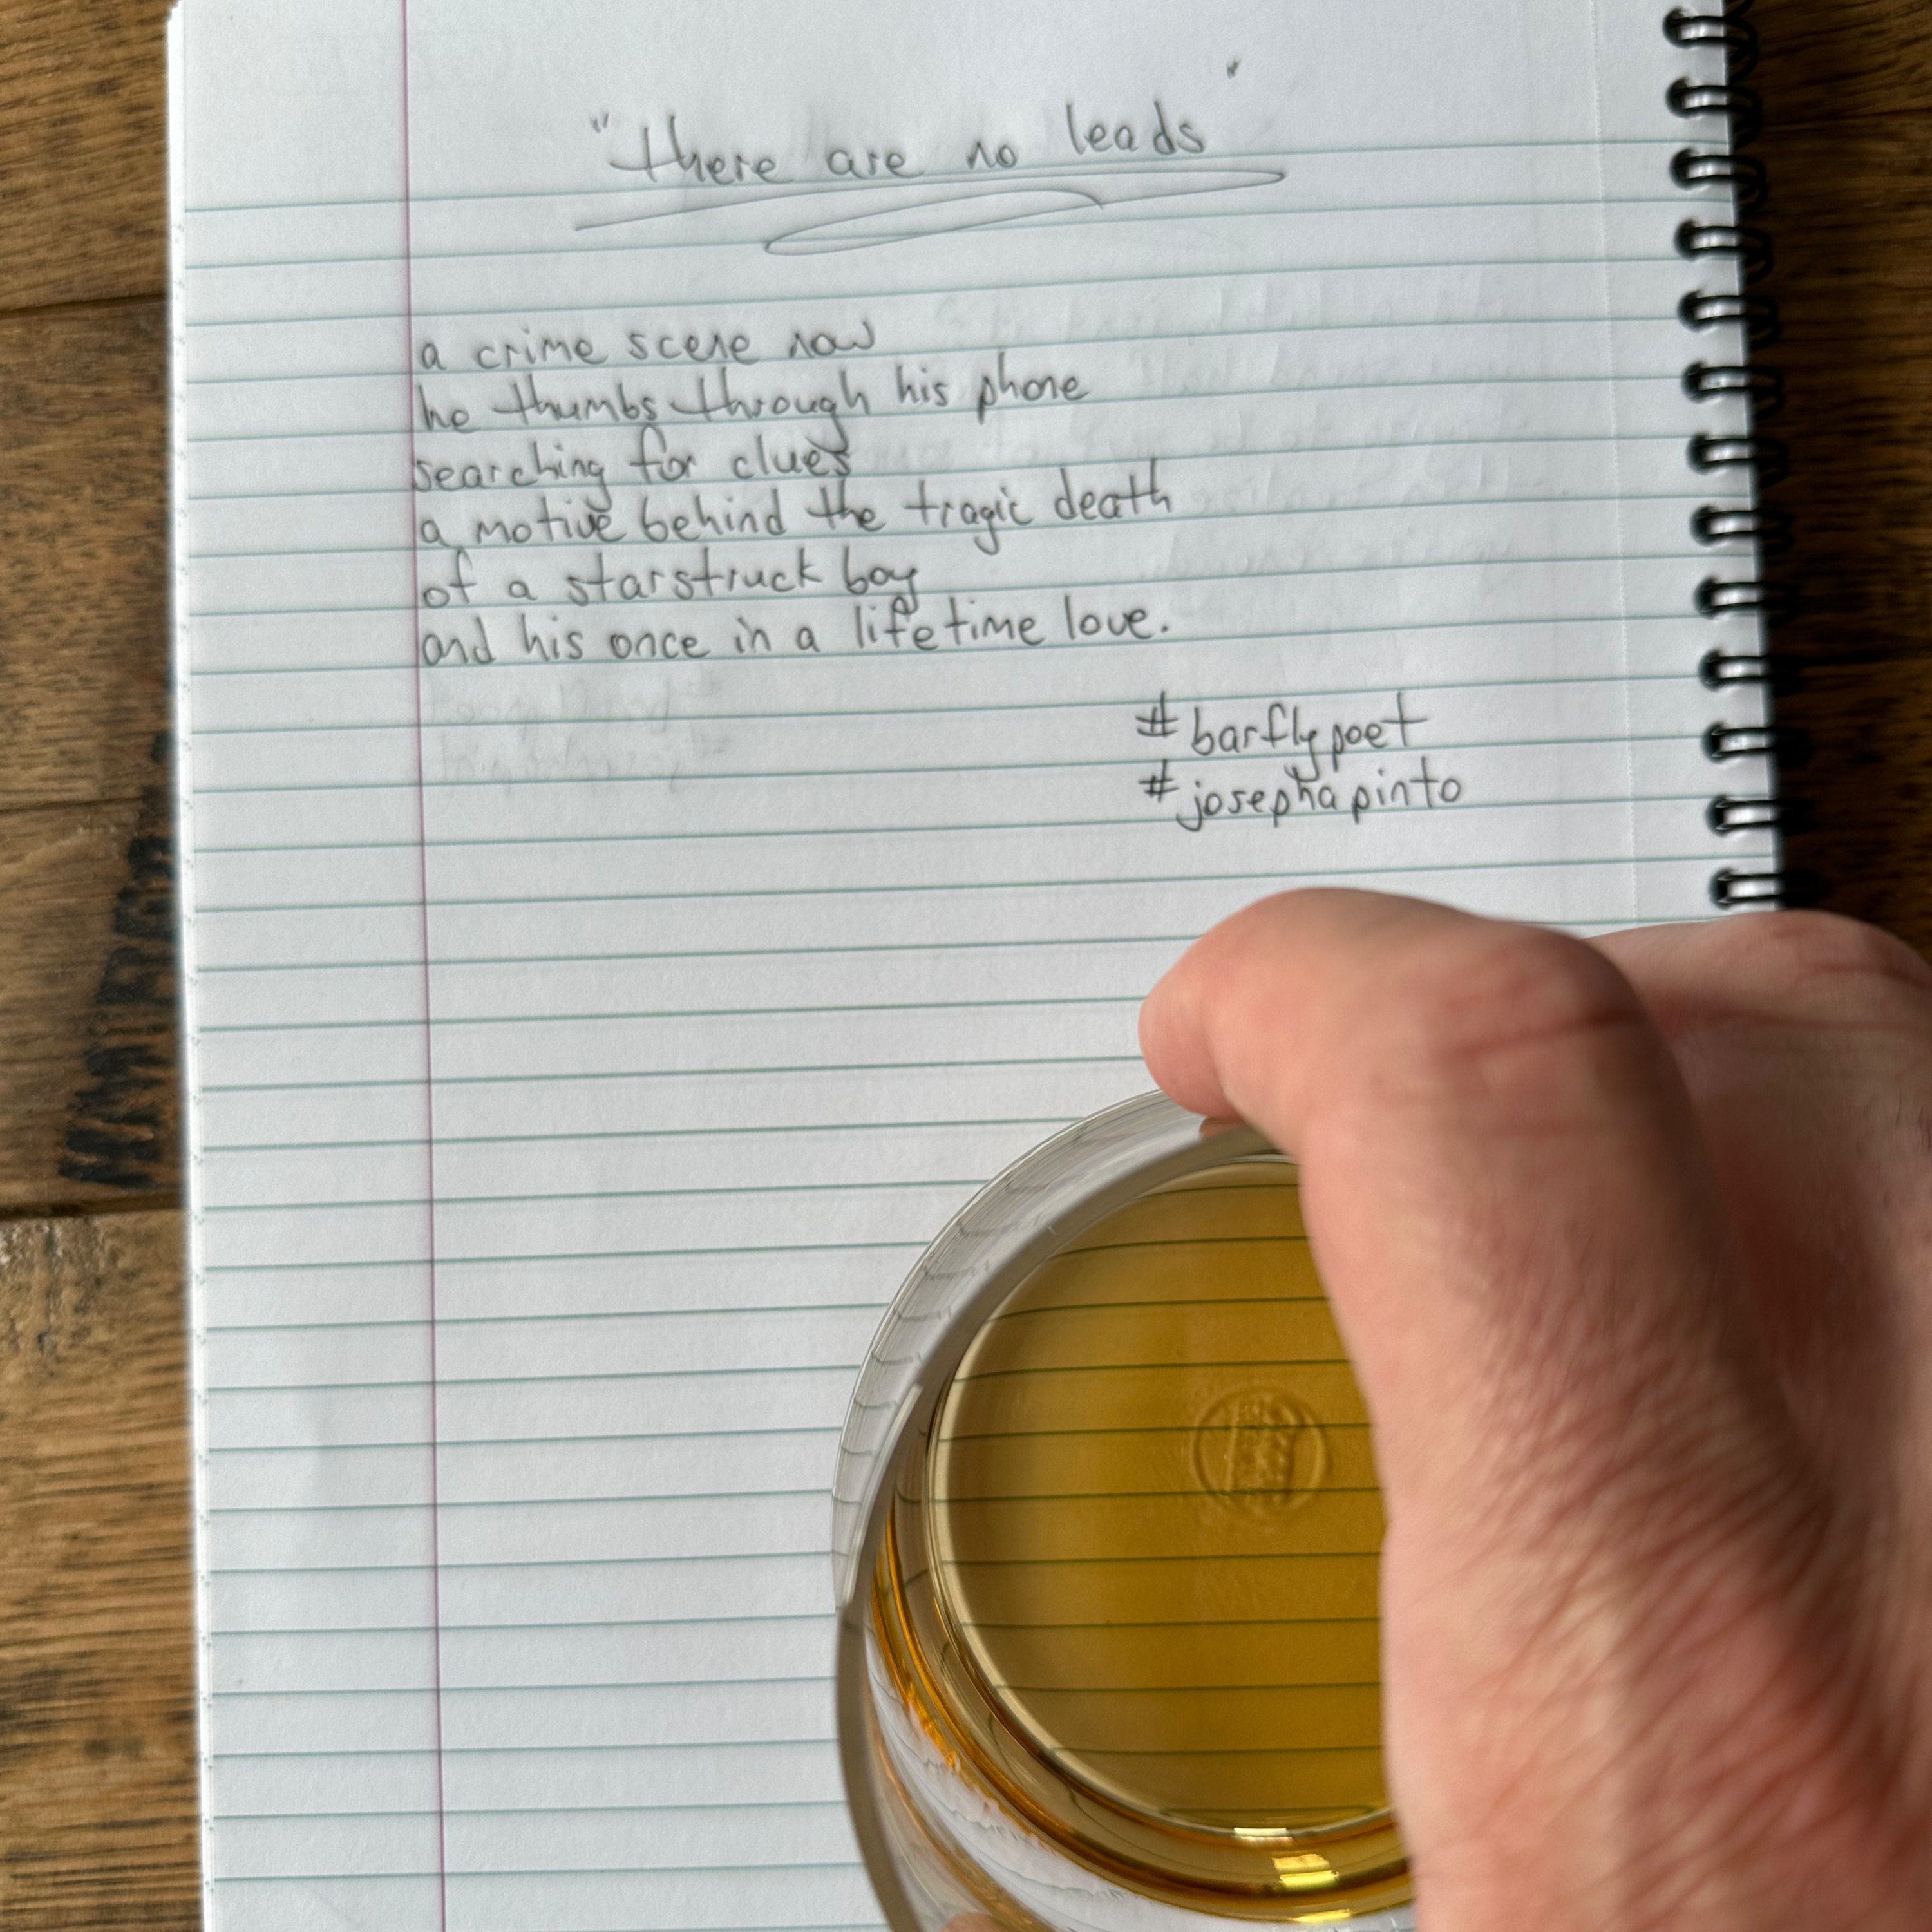 "there are no leads"
a crime scene now
he thumbs through his phone
searching for clues
a motive behind the tragic death
of a starstruck boy
and his once in a lifetime love.
#barflypoet
#josephapinto